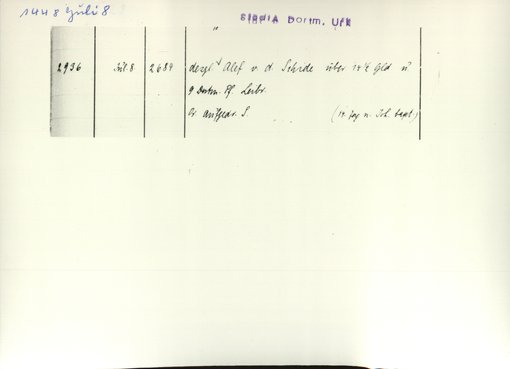 1448 Juli 8
StadtA Dortm. Urk
"
2936 Juli 8. 2684 desgl. Alef v. d. Schide über 14 ½ Gld u
9 Dortm. Pf. Leibr.
Or. aufgedr. S. (14. Tag n. Joh. bapt.)